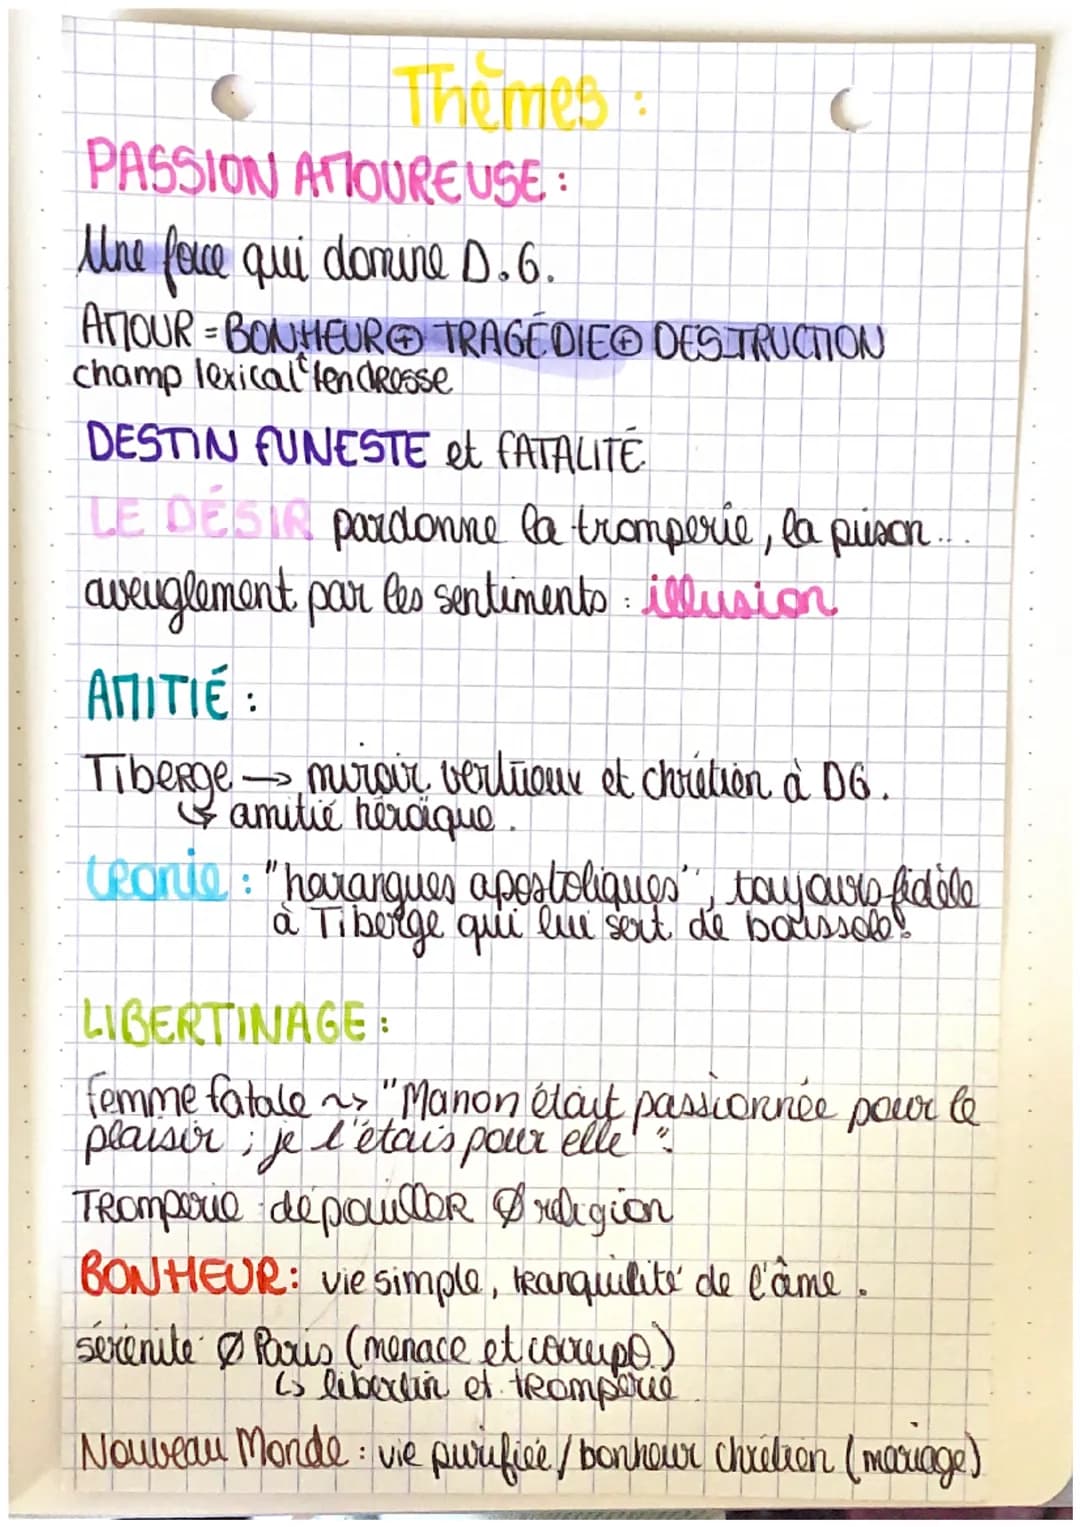 Thèmes :
PASSION AMOUREUSE :
Une force qui domine D.G.
AMOUR = BONHEUR ⊕ TRAGÉDIE ⊕ DESTRUCTION
champ lexical tendresse
DESTIN FUNESTE et FATALITÉ
LE DÉSIR pardonne la tromperie, la prison...
aveuglement par les sentiments : illusion
AMITIÉ :
Tiberge → miroir vertueux et chrétien à DG.
↳ amitié héroïque.
Ironie : "harangues apostoliques", toujours fidèle
à Tiberge qui lui sert de boussole!
LIBERTINAGE :
femme fatale ~> "Manon était passionnée pour le
plaisir ; je l'étais pour elle".
Tromperie dépouiller Ø religion
BONHEUR : vie simple, tranquilité de l'âme.
sérénité Ø Paris (menace et corrupθ)
↳ libertin et tromperie
Nouveau Monde : vie purifiée / bonheur chrétien (mariage)